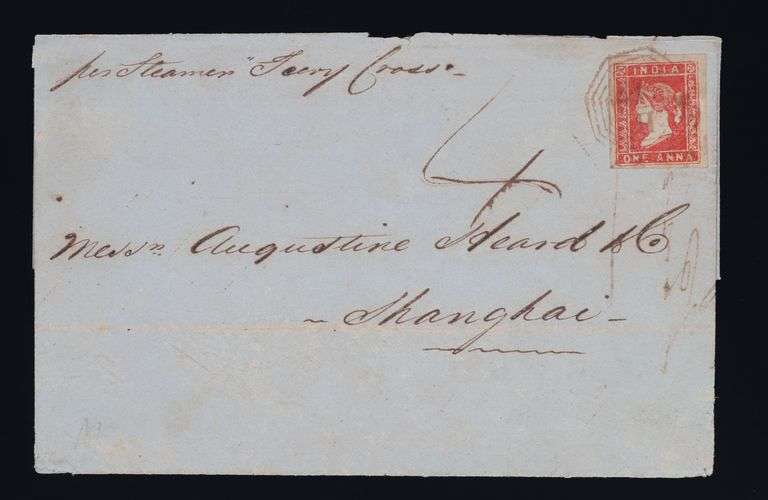 per Steamer "Fiery Cross"
INDIA
ONE ANNA
4
Messrs Augustine Heard & Co
- Shanghai -